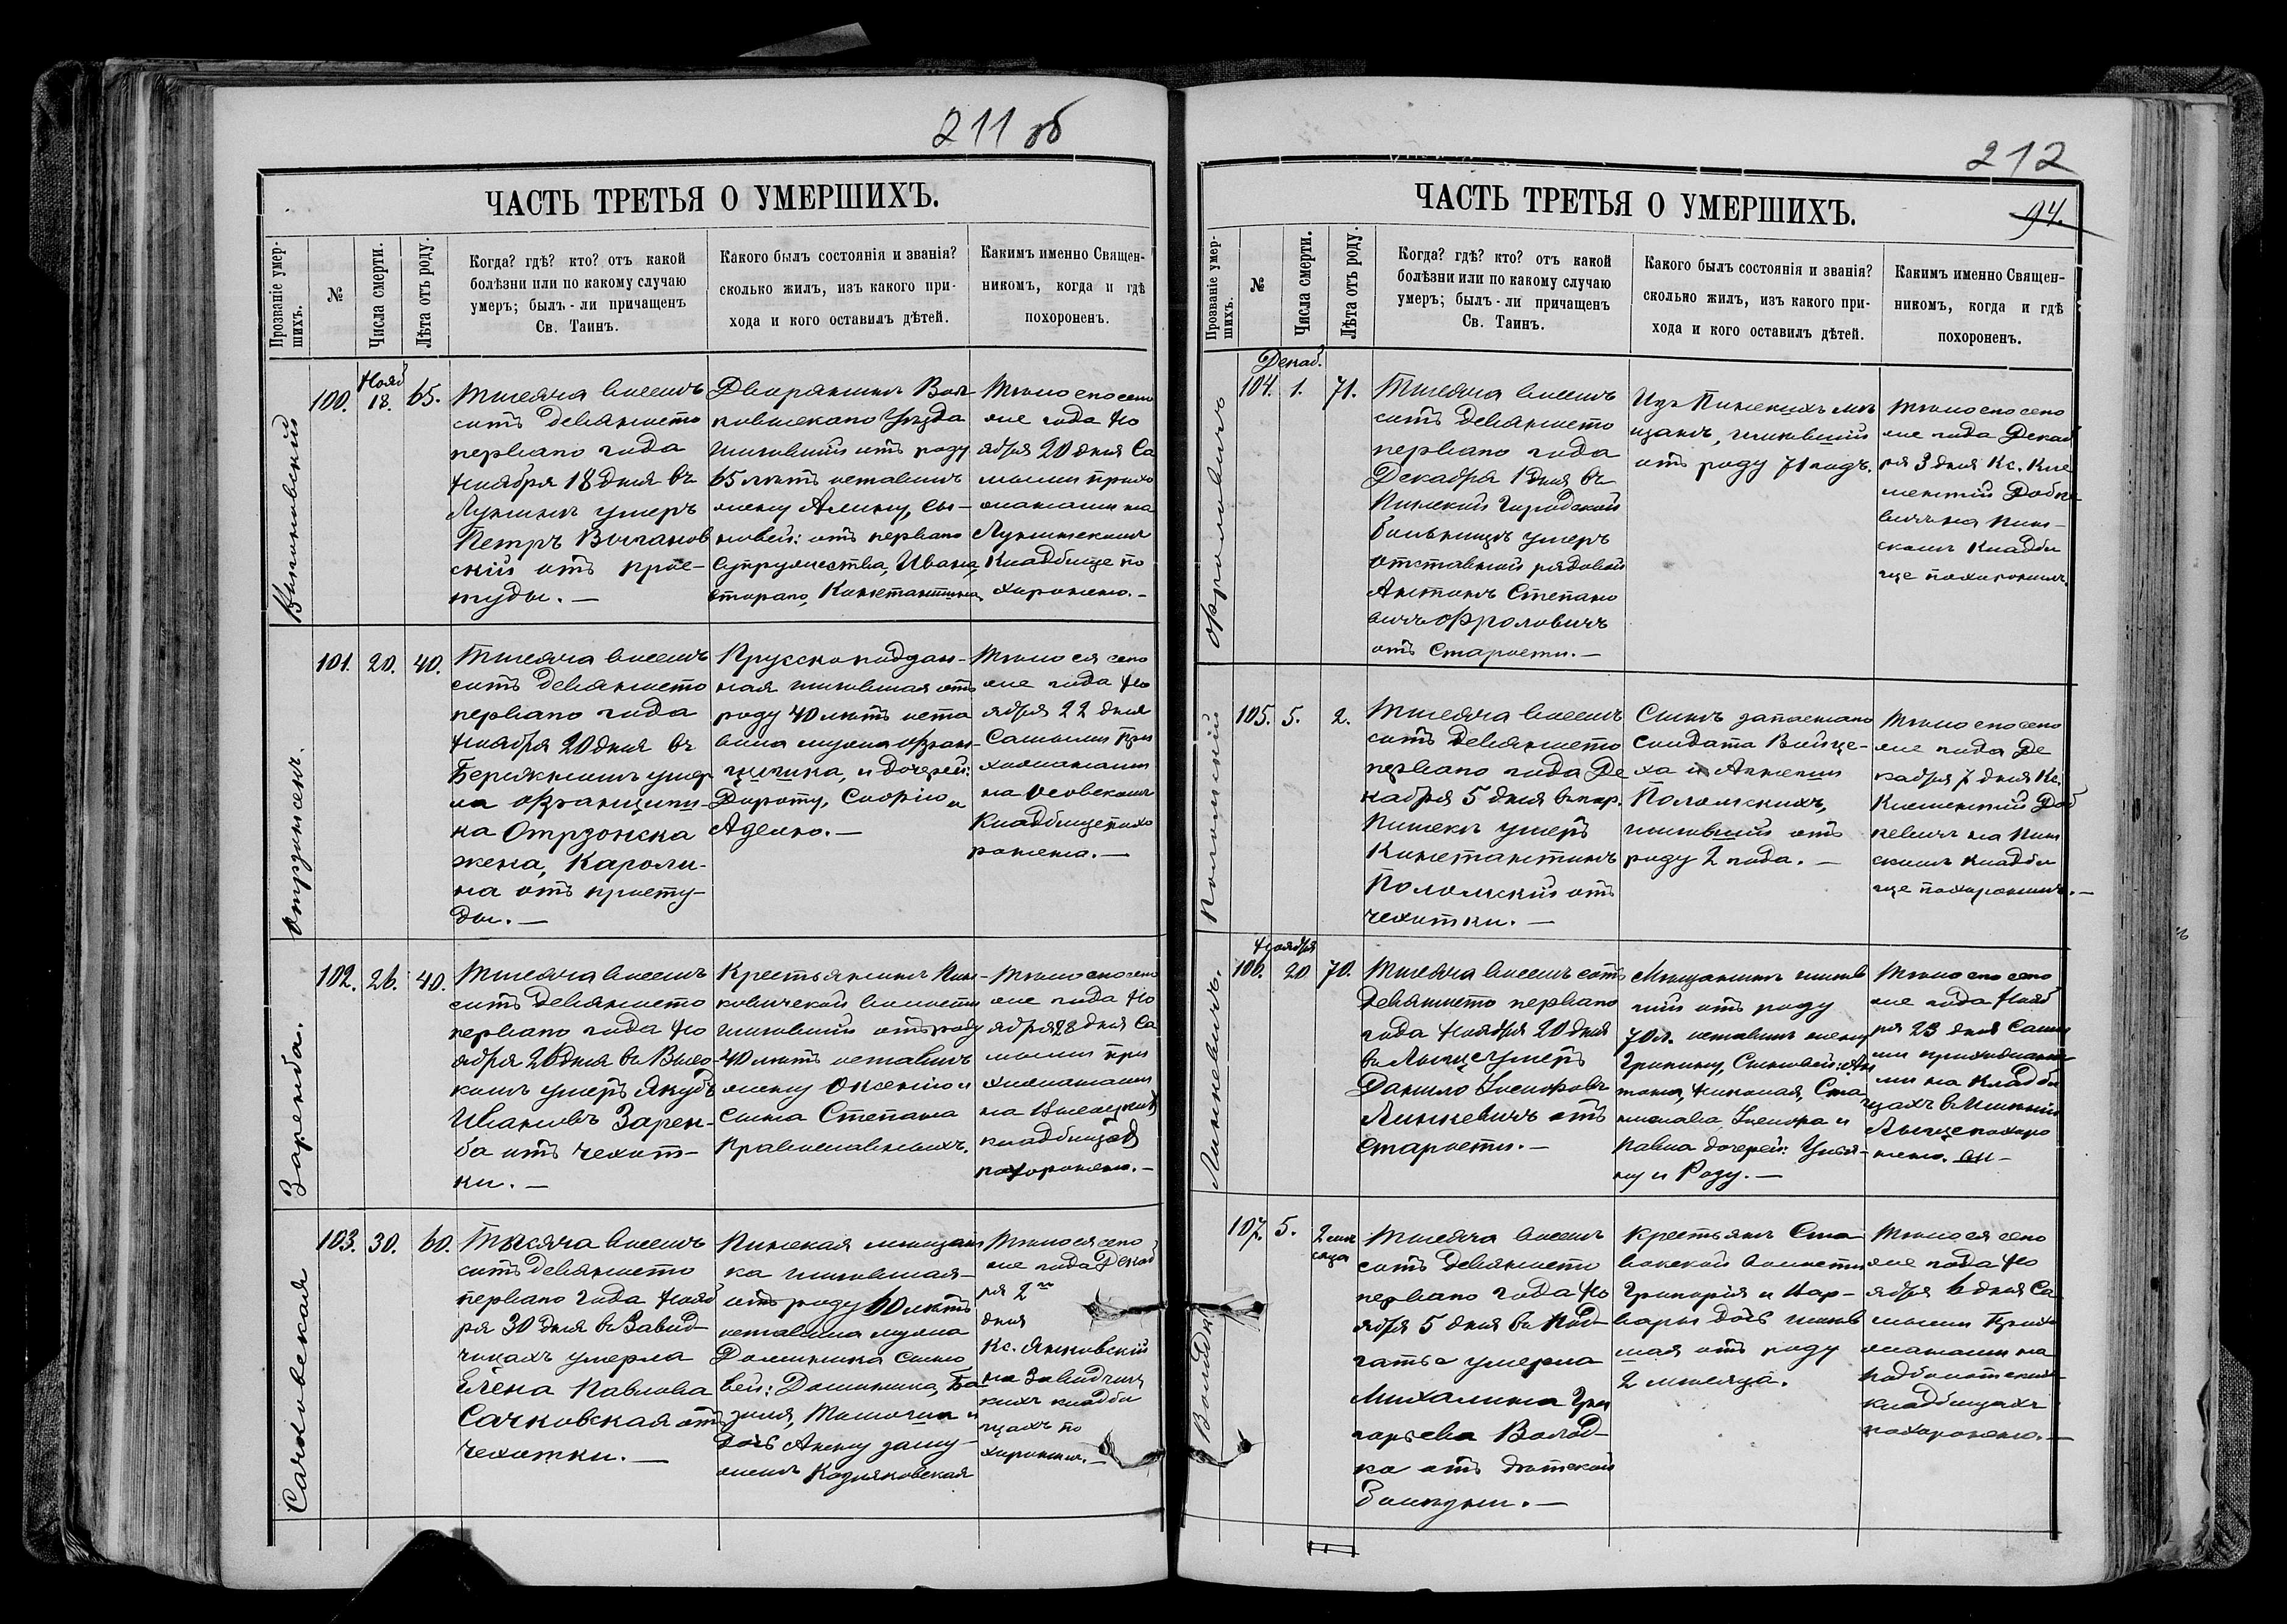 211 об
ЧАСТЬ ТРЕТЬЯ О УМЕРШИХЪ.
Прозваніе умер-
шихъ.
№
Числа смерти.
Лѣта отъ роду.
Когда? гдѣ? кто? отъ какой
болѣзни или по какому случаю
умеръ; былъ-ли причащенъ
Св. Таинъ.
Какого былъ состоянія и званія?
сколько жилъ, изъ какого при-
хода и кого оставилъ дѣтей.
Какимъ именно Священ-
никомъ, когда и гдѣ
похороненъ.
100.
Нояб
18.
65.
Тысяча восемь
сотъ девяносто
перваго года
Ноября 18 дня въ
умеръ
Петръ
скій отъ прос-
туды. —
Дворянинъ Вол
ковыскаго Уѣзда
жившій отъ роду
65 лѣтъ оставилъ
жену Алину, сы-
новей: отъ перваго
супружества, Ивана,
втораго, Константина
Тѣло его сего
же года Но
ября 20 дня Са
мыми прихо
жанами на
Кладбище по
хоронено. —
Отрзонсекъ.
101.
20.
40.
Тысяча восемь
сотъ девяносто
перваго года
Ноября 20 дня въ
умер
ла Францишка
на Отрзонска
жена, Кароли-
на отъ просту-
ды. —
Прусско поддан-
ная жившая отъ
роду 40 лѣтъ оста
вила мужа Фран-
цишка, и дочерей:
Дороту, Софію и
Аделю. —
Тѣло ея сего
же года Но
ября 22 дня
Самыми При
хожанами
на Осовскомъ
Кладбище похо
ронена. —
Заремба.
102.
26.
40.
Тысяча восемь
сотъ девяносто
перваго года Но
ября 26 дня въ Высо
комъ умеръ Якубъ
Ивановъ Зарем-
ба отъ чехот-
ки. —
Крестьянинъ Пин-
ковичской волости
жившій отъ роду
40 лѣтъ оставилъ
жену Оксенію и
сына Степана
Православныхъ.
Тѣло его сего
же года Но
ября 28 дня Са
мыми при
хожанами
на
кладбищѣ
похоронено. —
Сачковская
103.
30.
60.
Тысяча восемь
сотъ девяносто
перваго года Нояб
ря 30 дня въ Завид-
чицахъ умерла
Елена Павлова
Сачковская отъ
чехотки. —
Пинская мѣщан
ка жившая
отъ роду 60 лѣтъ
оставила мужа
Доминика сыно
вей: Доминика, Ба
зыля, и
дочь Анну заму-
жемъ
Тѣло ея сего
же года Декаб
ря 2го
дня
Кс. Янковскій
на Завидчиц
кихъ кладби
щахъ по
хоронилъ. —
212
ЧАСТЬ ТРЕТЬЯ О УМЕРШИХЪ.
94.
Прозваніе умер-
шихъ.
№
Числа смерти.
Лѣта отъ роду.
Когда? гдѣ? кто? отъ какой
болѣзни или по какому случаю
умеръ; былъ-ли причащенъ
Св. Таинъ.
Какого былъ состоянія и званія?
сколько жилъ, изъ какого при-
хода и кого оставилъ дѣтей.
Какимъ именно Священ-
никомъ, когда и гдѣ
похороненъ.
Фроловичъ
Декаб.
104.
1.
71.
Тысяча восемь
сотъ девяносто
перваго года
Декабря 1 дня въ
Пинской Городской
больницѣ умеръ
отставной рядовой
Антонъ Степано
вичъ Фроловичъ
отъ старости. —
Изъ Пинскихъ мѣ
щанъ, жившій
отъ роду 71 годъ.
Тѣло его сего
же года Декаб
ря 3 дня Кс. Кле
ментій
на Пин-
скомъ Кладби
ще похоронилъ.
Поломскій
105.
5.
2.
Тысяча восемь
сотъ девяносто
перваго года Де
кабря 5 дня въ гор.
Пинскѣ умеръ
Константинъ
Поломскій отъ
чехотки. —
Сынъ запаснаго
солдата Войце-
ха и
Поломскихъ,
жившій отъ
роду 2 года. —
Тѣло его сего
же года Де
кабря 7 дня Кс.
Клементій
на Пин
скомъ кладби
ще похоронилъ. —
Линкевичъ.
Ноября
106.
20
70.
Тысяча восемь сотъ
девяносто перваго
года Ноября 20 дня
въ умеръ
Данило Іосифовъ
Линкевичъ отъ
старости. —
Мѣщанинъ жив
шій отъ роду
70 л. оставилъ жену
сыновей: Ан
тона, Николая, Ста
нислава, Іосифа и
Павла дочерей:
и Розу. —
Тѣло его сего
же года Нояб
ря 23 дня Самы
ми прихожана
ми на кладби
щахъ
похоро
нено. —
Володко
107.
5.
2 мѣ
сяца
Тысяча восемь
сотъ девяносто
перваго года Но
ября 5 дня въ
умерла
Михалина Гри
горьева Волод-
ко отъ дѣтской
болѣзни. —
Крестьянъ Ста
вокской волости
Григорія и Вар-
вары дочь жив
шая отъ роду
2 мѣсяца.
Тѣло ея сего
же года Но
ября 6 дня Са
мыми Прихо
жанами на
кладбищахъ
похоронено. —